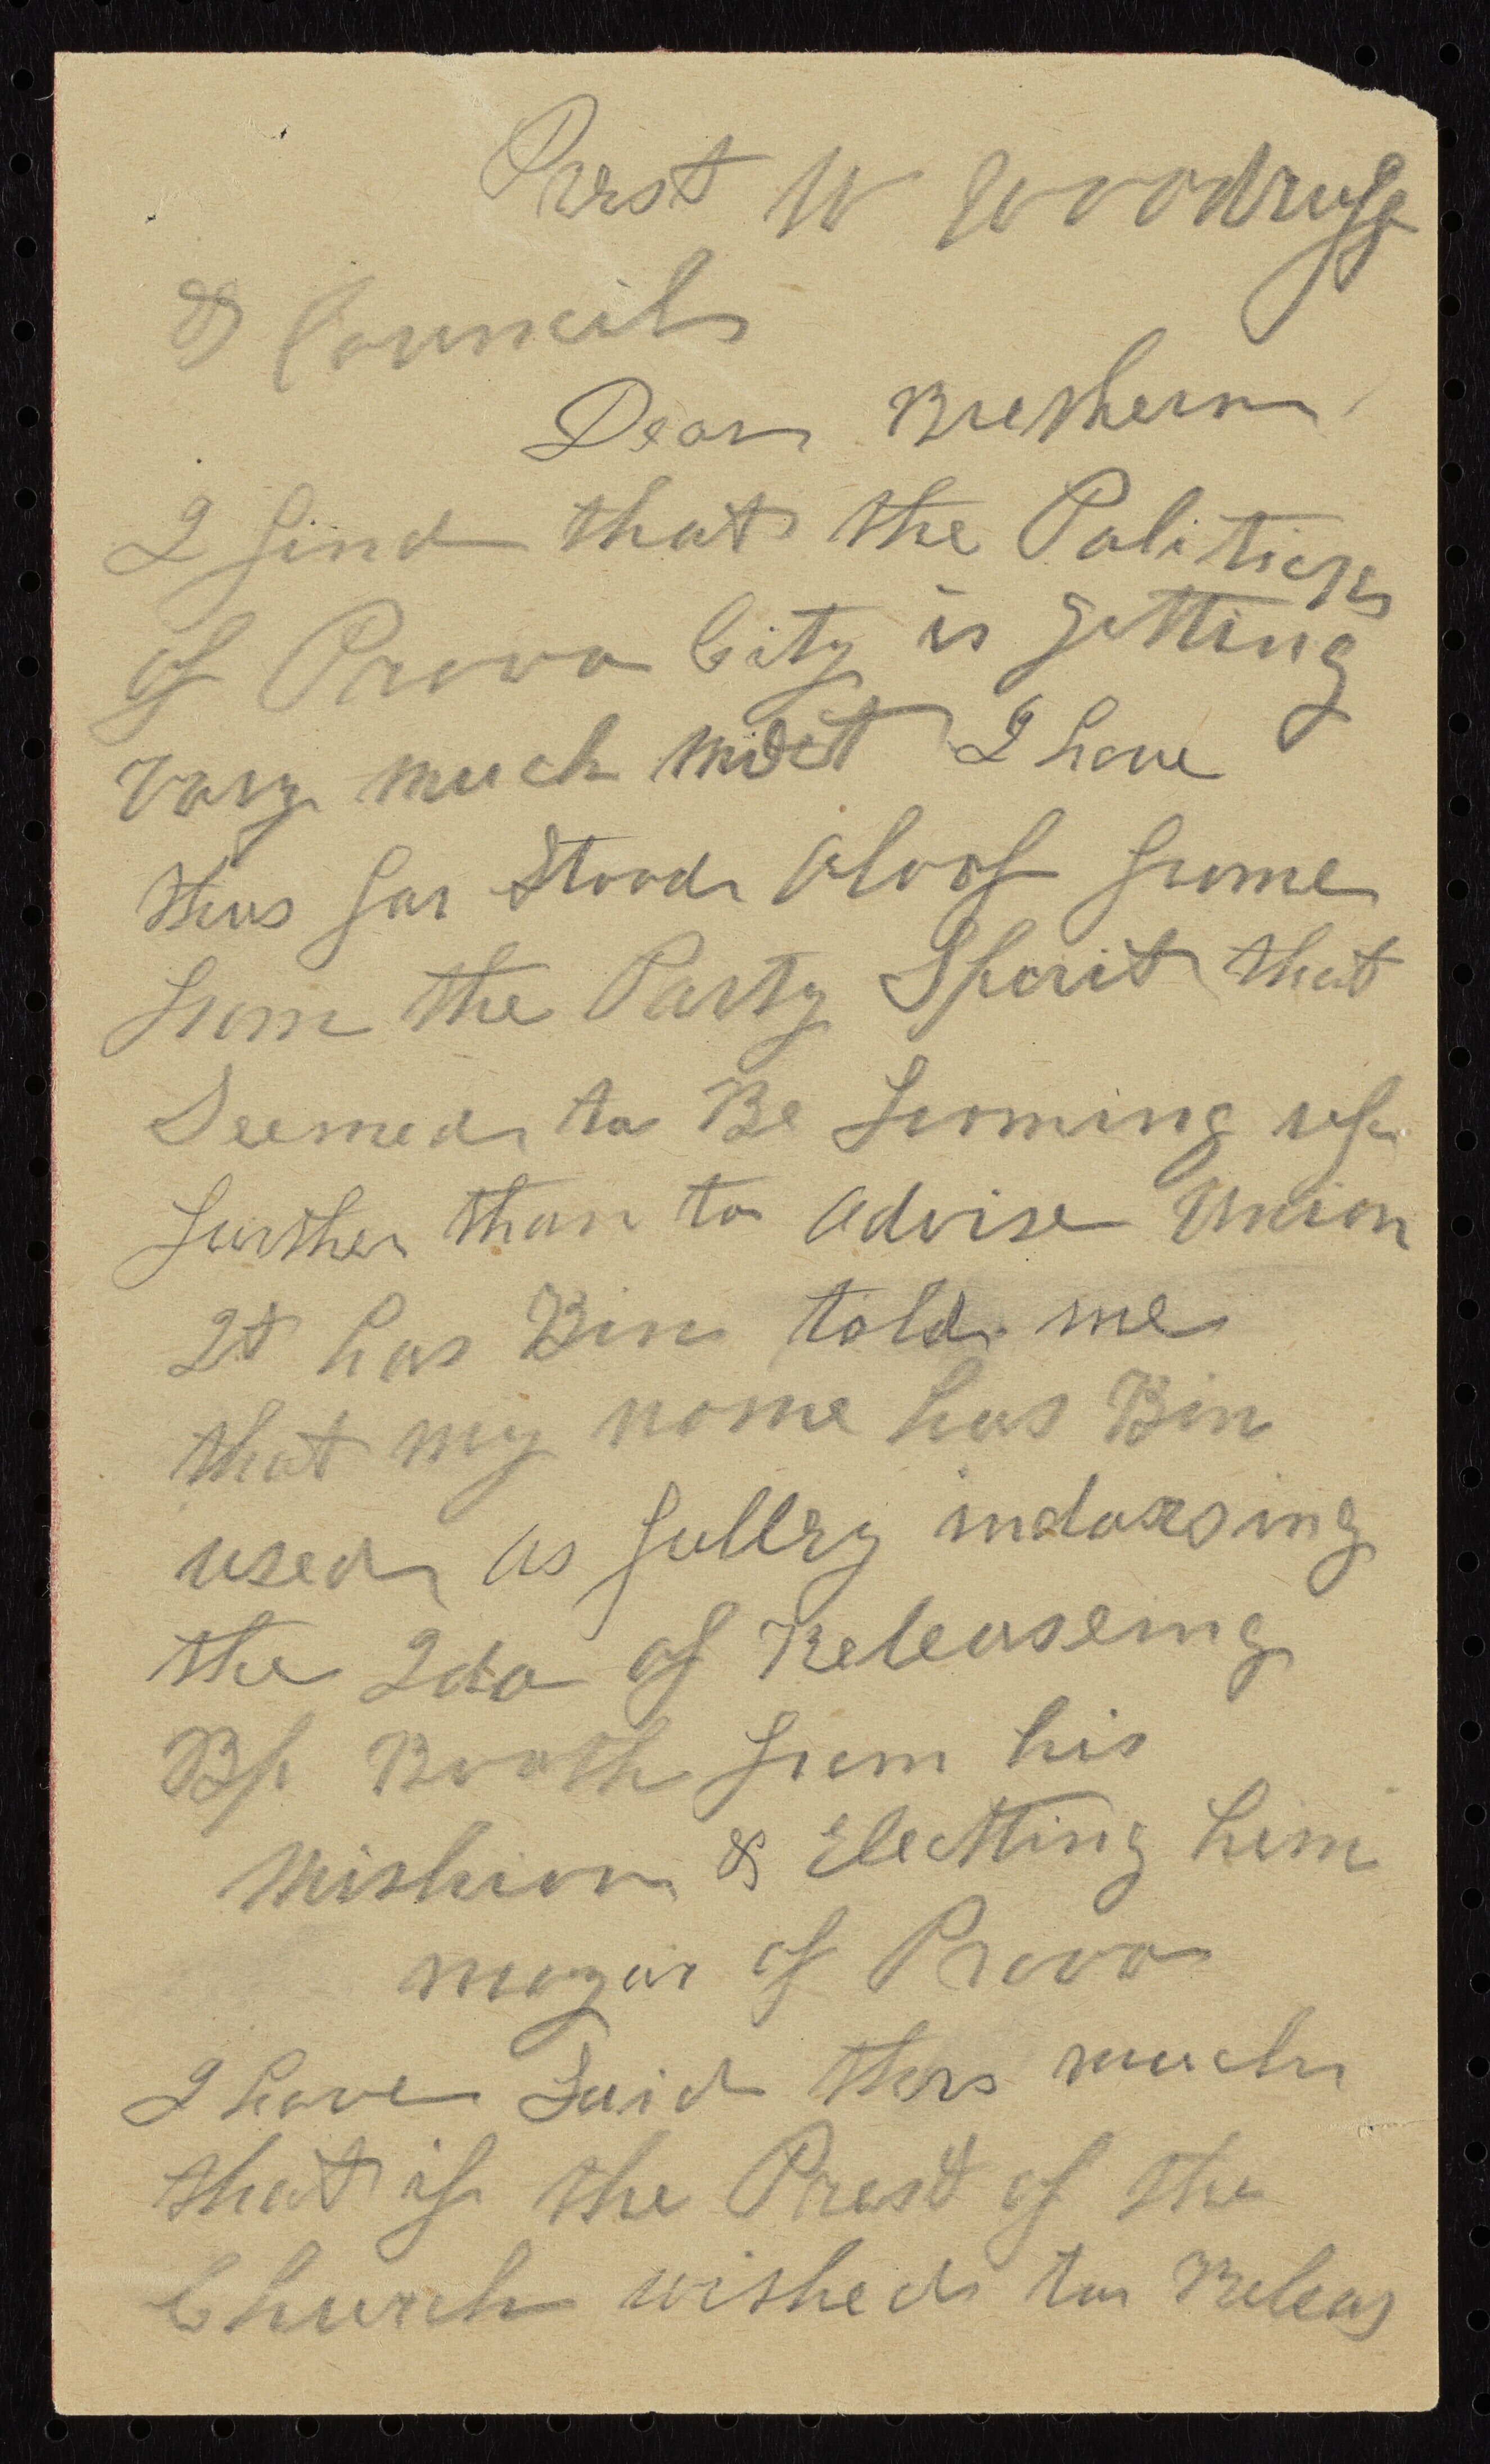 Prest W Woodruff
& Councils
Dear Brethern
I find that the Politicks
of Provo City is getting
vary much mixt I have
thus far Stood Aloof frome
from the Party Spirit that
Seemed to Be Froming up
further than to advise Union
It has Bin told me
that my name has Bin
used as fullry indorsing
the Ida of Releaseing
Bp Booth from his
Mishion & Electting him
mayor of Provo
I have Said this much
that if the Prest of the
Church wished to Releas